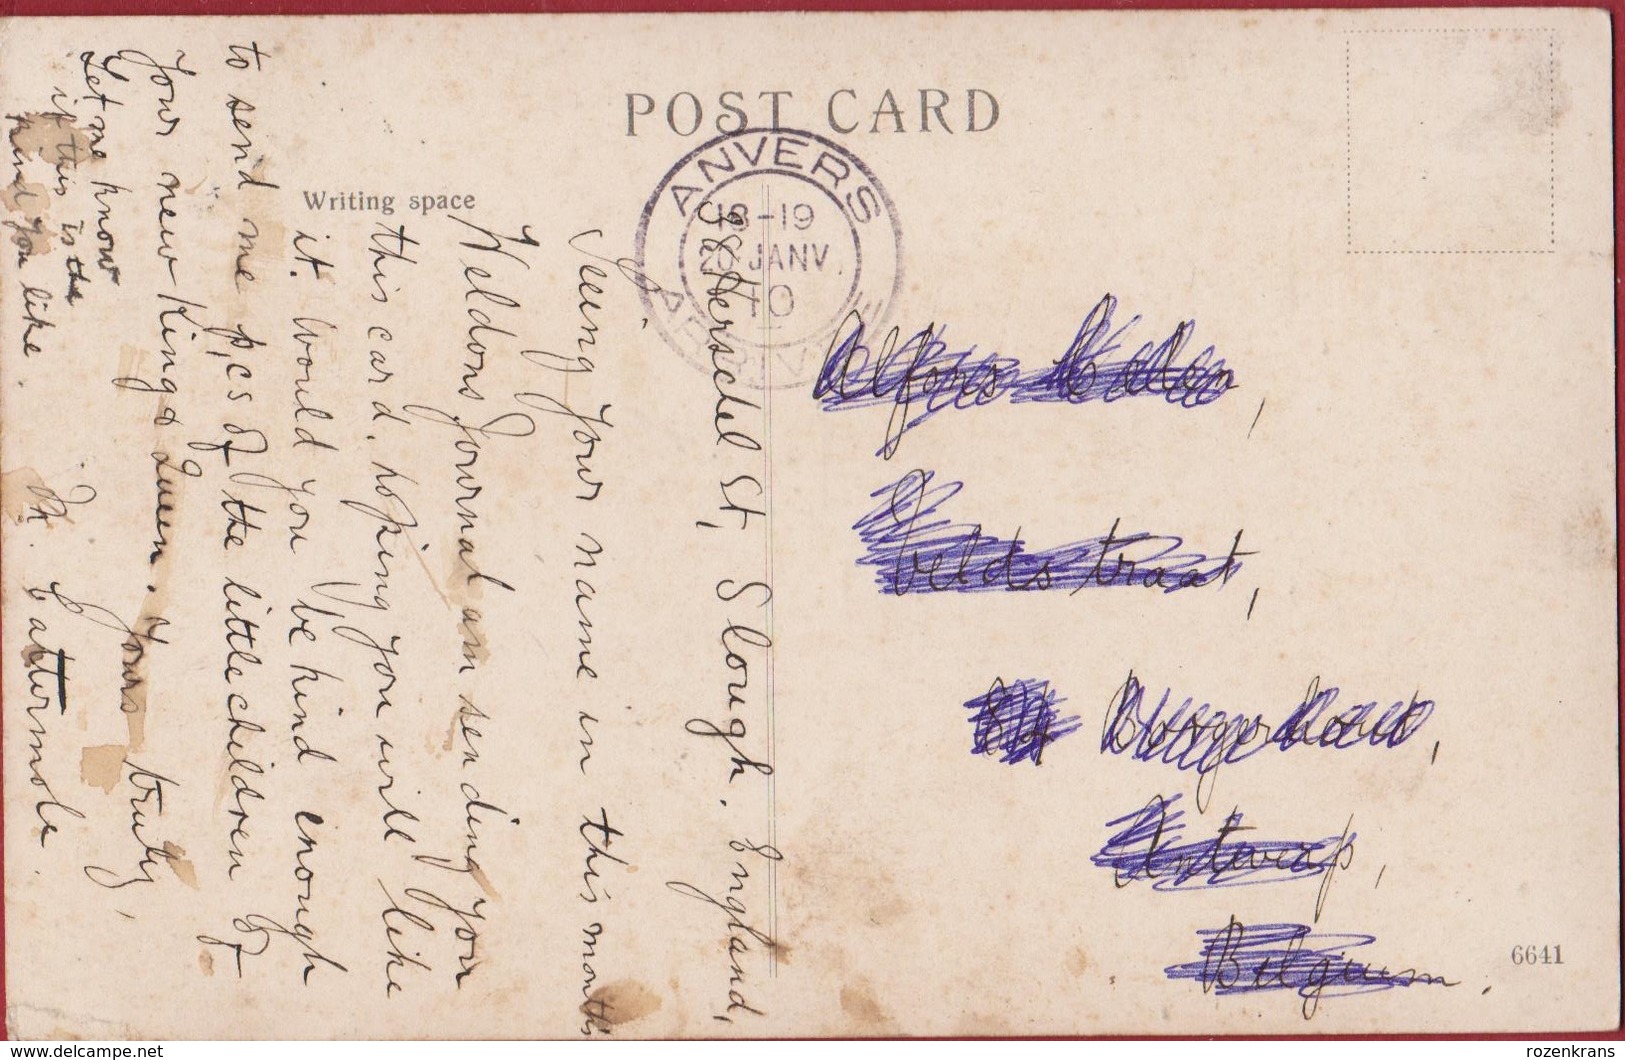 POST CARD
Writing space
ANVERS
18-19
20 JANV.
10
38 Herschel St, Slough. England,
Seeing your name in this months
Weldons Journal am sending you
this card. hoping you will like
it. Would you be kind enough
to send me p,cs of the little children of
your new King & Queen. Yours truly,
Let me know
if this is the
kind you like.
Alfons
Veldstraat,
84 Borgerhout,
Antwerp,
Belgium.
6641
rozenkrans
delcampe.net